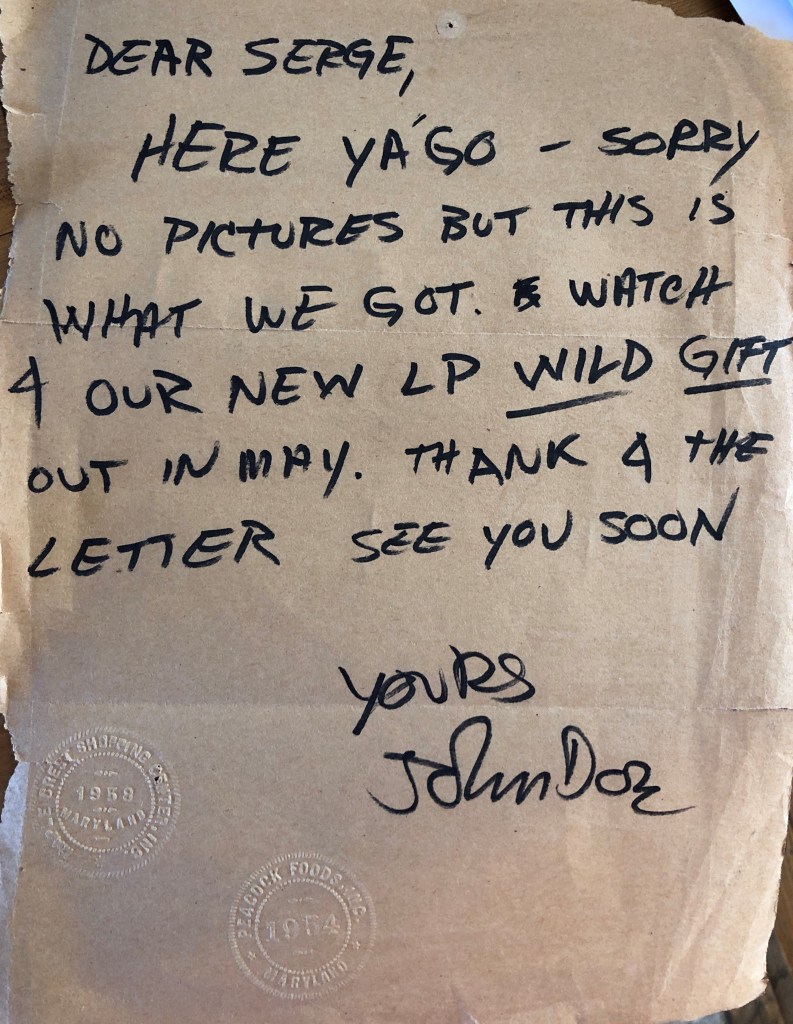 DEAR SERGE,
HERE YA'GO - SORRY
NO PICTURES BUT THIS IS
WHAT WE GOT. WATCH
4 OUR NEW LP WILD GIFT
OUT IN MAY. THANK 4 THE
LETTER SEE YOU SOON
YOURS
John Doe
SHOPPING CENTER, INC.
1959
MARYLAND
PEACOCK FOODS, INC.
1954
MARYLAND